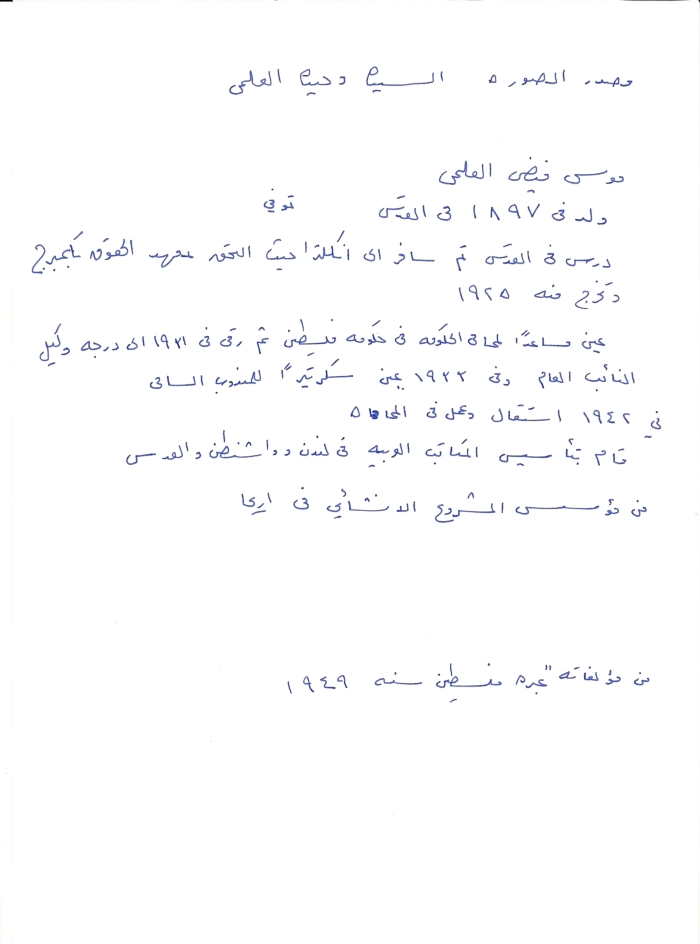 مصدر الصوره السيده وحيده العلمي
موسى فيضي العلمي
ولد فى ١٨٩٧ فى القدس توفي
درس فى القدس ثم سافر الى انكلترا حيث التحق بمعهد الحقوق بكمبردج
وتخرج منه ١٩٢٥
عين مساعدًا لمحامى الحكومه فى حكومه فلسطين ثم رقى فى ١٩٣١ الى درجه وكيل
النائب العام وفى ١٩٣٣ عين سكرتيرًا للمندوب السامى
في ١٩٤٢ استقال وعمل فى المحاماه
قام بتأسيس المكاتب العربيه فى لندن وواشنطن والقدس
من مؤسسى المشروع الانشائي فى اريحا
من مؤلفاته "عبره فلسطين سنه ١٩٤٩